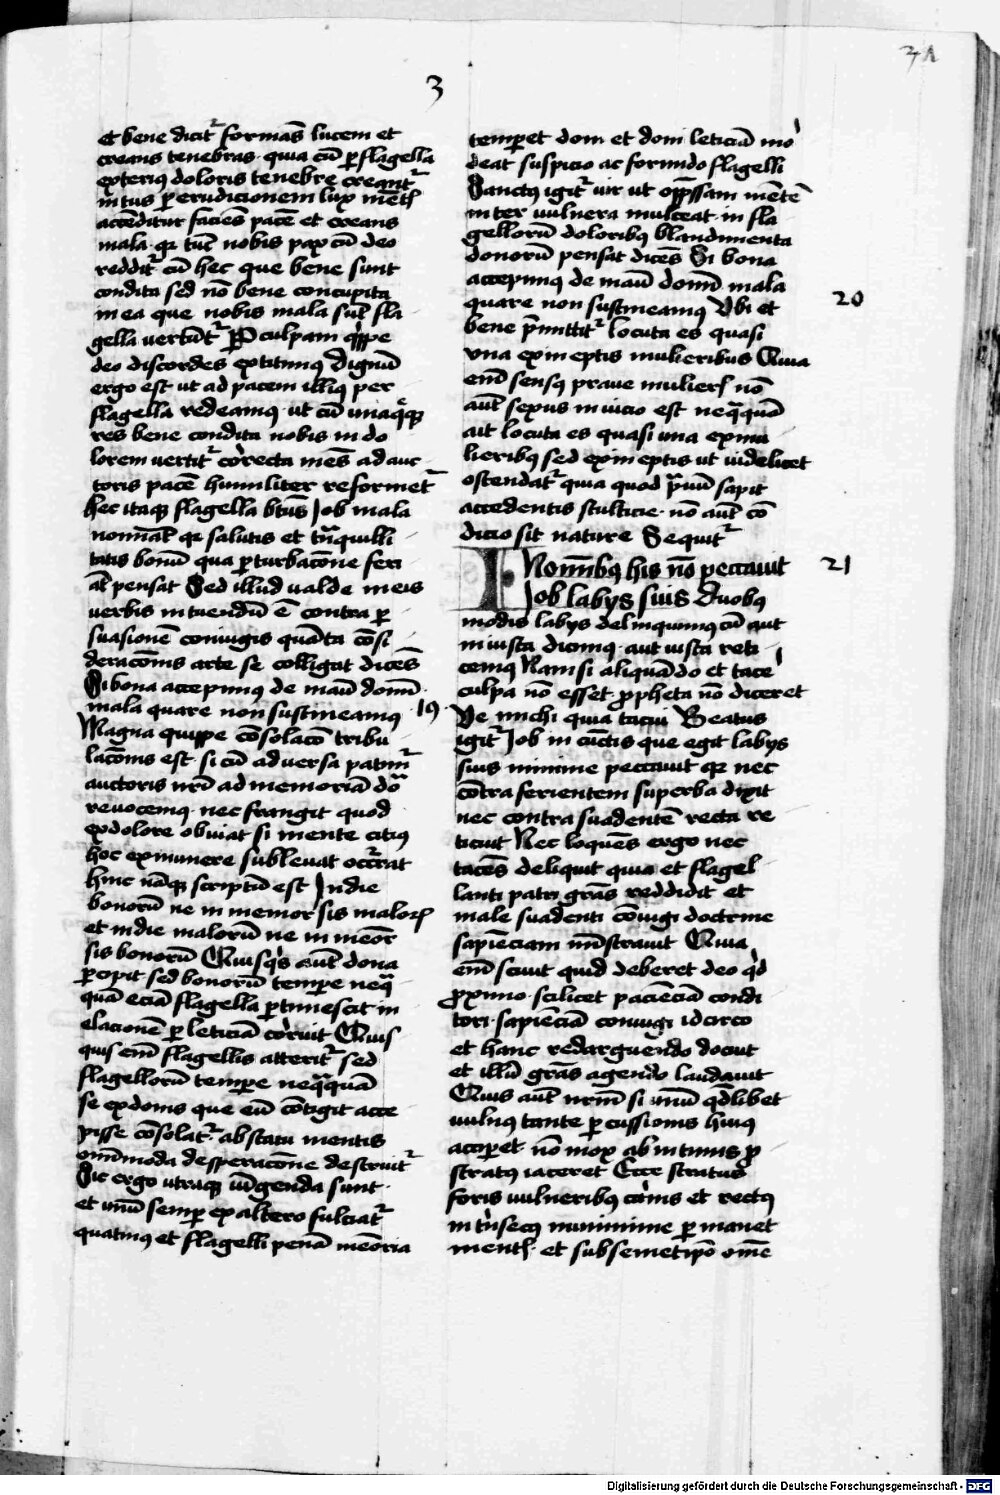 31
3
et bene dicit᷑ formās lucem et
creans tenebras · quia cū ꝑ flagella
exterius doloris tenebre creant᷑
intus ꝑ erudicionem lux mētꝭ
accenditur faciēs pacē et creans
mala · qꝛ tūc nobis pax cū deo
reddit᷑ cū hec que bene sunt
condita sed nō bene concupita
in ea que nobis mala sūt fla
gella vertūt᷑ Per culpam qͥppe
deo discordes extitimꝰ Dignū
ergo est ut ad pacem illiꝰ per
flagella redeamꝰ · ut cū unaqͣqꝫ
res bene condita nobis in do
lorem vertit᷑ correcta mēs ad auc
toris pacē humiliter reformet᷑
hec itaqꝫ flagella btūs Job mala
noīat qꝛ salutis et tͣnquilli
tatis bonū qua ꝑturbacōne feri
at pensat Sed illud valde in eis
verbis intuendū ē contra ꝑ
suasionē coniugis quāta cōsi
deracōnis arte se colligat dicēs
Si bona accepimꝰ de manu domī
mala quare non sustineamꝰ · 19 ·
Magna quippe cōsolacō tribu
lacōnis est si cū adversa patim᷑
auctoris nrī ad memoriā dōa
revocemꝰ · nec frangit quod
ex dolore obviat si mente citiꝰ
hoc ex munere sublevat occurrat
hinc nāqꝫ scriptū est In die
bonorū ne in memor sis malorꝫ
et in die malorū ne in meōr
sis bonorū Quisqͥs aūt dona
ꝑcipit · sed bonorū tempe neqͣ
quā eciā flagella ꝑtimescit in
elacionē ꝑ leticiā corruit Quis
quis eīm flagellis atterit᷑ sed
flagellorū tempe neqͣquā
se ex donis que eū cōtigit acce
pisse cōsolat᷑ · ab statu mentis
omīmoda desperacōne destruit᷑
Sic ergo utraqꝫ iūgenda sunt ·
et unū semꝑ ex altero fulciat᷑
quatinꝰ et flagelli penā meōria
temperet doni et doni leticiā mor
deat suspicio ac formido flagelli
Sanctꝰ igit᷑ vir ut oppͣssam mētē
inter vulnera mulceat · in fla
gellorū doloribꝰ blandimenta
donorū pensat dicēs Si bona
accepimꝰ de manū domī mala
quare non sustineamꝰ Ubi et
bene pͣmittit᷑ locuta es quasi
una ex ineptis mulieribus Quia
20
eīm sensꝰ prave mulierꝭ nō
aūt sexus in vicio est neqͣquā
ait locuta es quasi una ex mu
lieribus sed ex ineptis ut videlicet
ostendat᷑ quia quod pravū sapit
accedentis stulticie · nō aūt cō
dicio sit nature Sequit᷑
IN om̄ibꝰ his nō peccavit
Job labijs suis Duobꝰ
21
modis labijs delinquimꝰ cū aut
iniusta dicimꝰ · aut iusta reti
cemꝰ Nam si aliquādo et tace
culpa nō esset · ꝓpheta nō diceret
Ve michi quia tacui Beatus
igit᷑ Job in cūctis que egit labijs
suis minime peccavit qꝛ nec
cōtra ferientem superba dixit
nec contra suadentē recta re
ticuit Nec loquēs ergo nec
tacēs deliquit quia et flagel
lanti patri grās reddidit et
male suadenti cōiugi doctrine
sapienciam mīstravit Quia
eīm scivit quid deberet deo qͥd
ꝓximo · scilicet pacienciā condi
tori · sapienciā coniugi idcirco
et hanc redarguendo docuit
et illū grās agendo laudavit
Quis aūt nrm̄ si unū qͦdlibet
vulnꝰ tante ꝑcussionis huiꝰ
acciperet nō mox ab intimis ꝓ
stratꝰ iaceret Ecce stratus
foris vulneribꝰ carnis et rectꝰ
intrinsecꝰ munimine ꝑmanet
mentꝭ · et sub semetipo om̄e
Digitalisierung gefördert durch die Deutsche Forschungsgemeinschaft - DFG